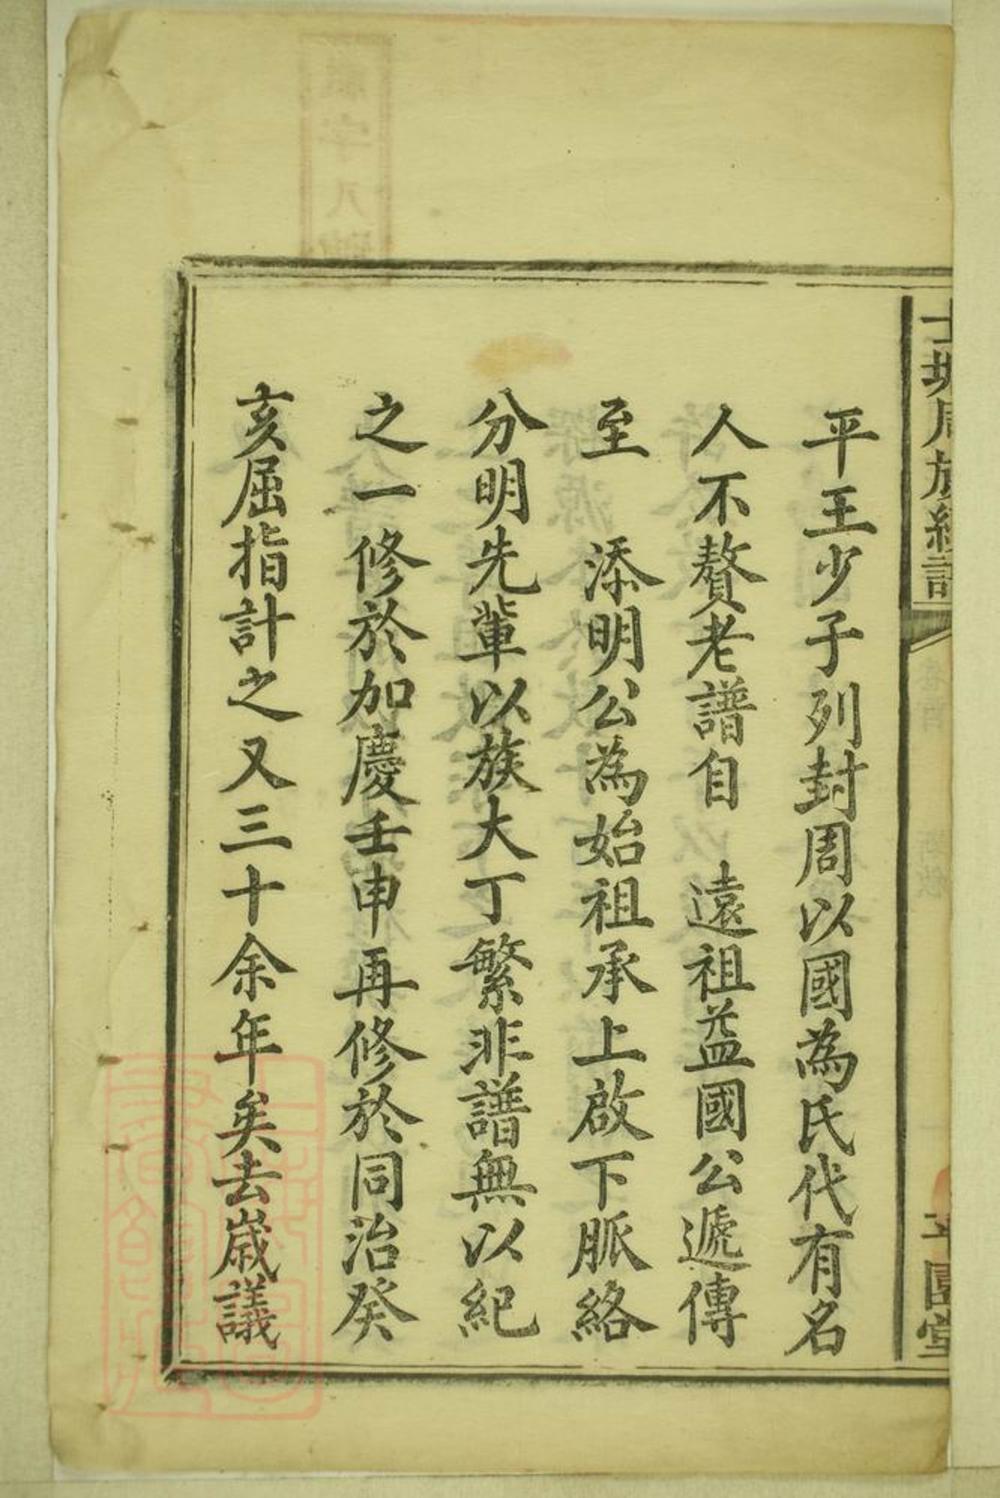 平王少子列封周以國為氏代有名
人不贅老譜自 遠祖益國公遞傳
至 添明公為始祖承上啟下脈絡
分明先輩以族大丁繁非譜無以紀
之一修於加慶壬申再修於同治癸
亥屈指計之又三十余年矣去歲議